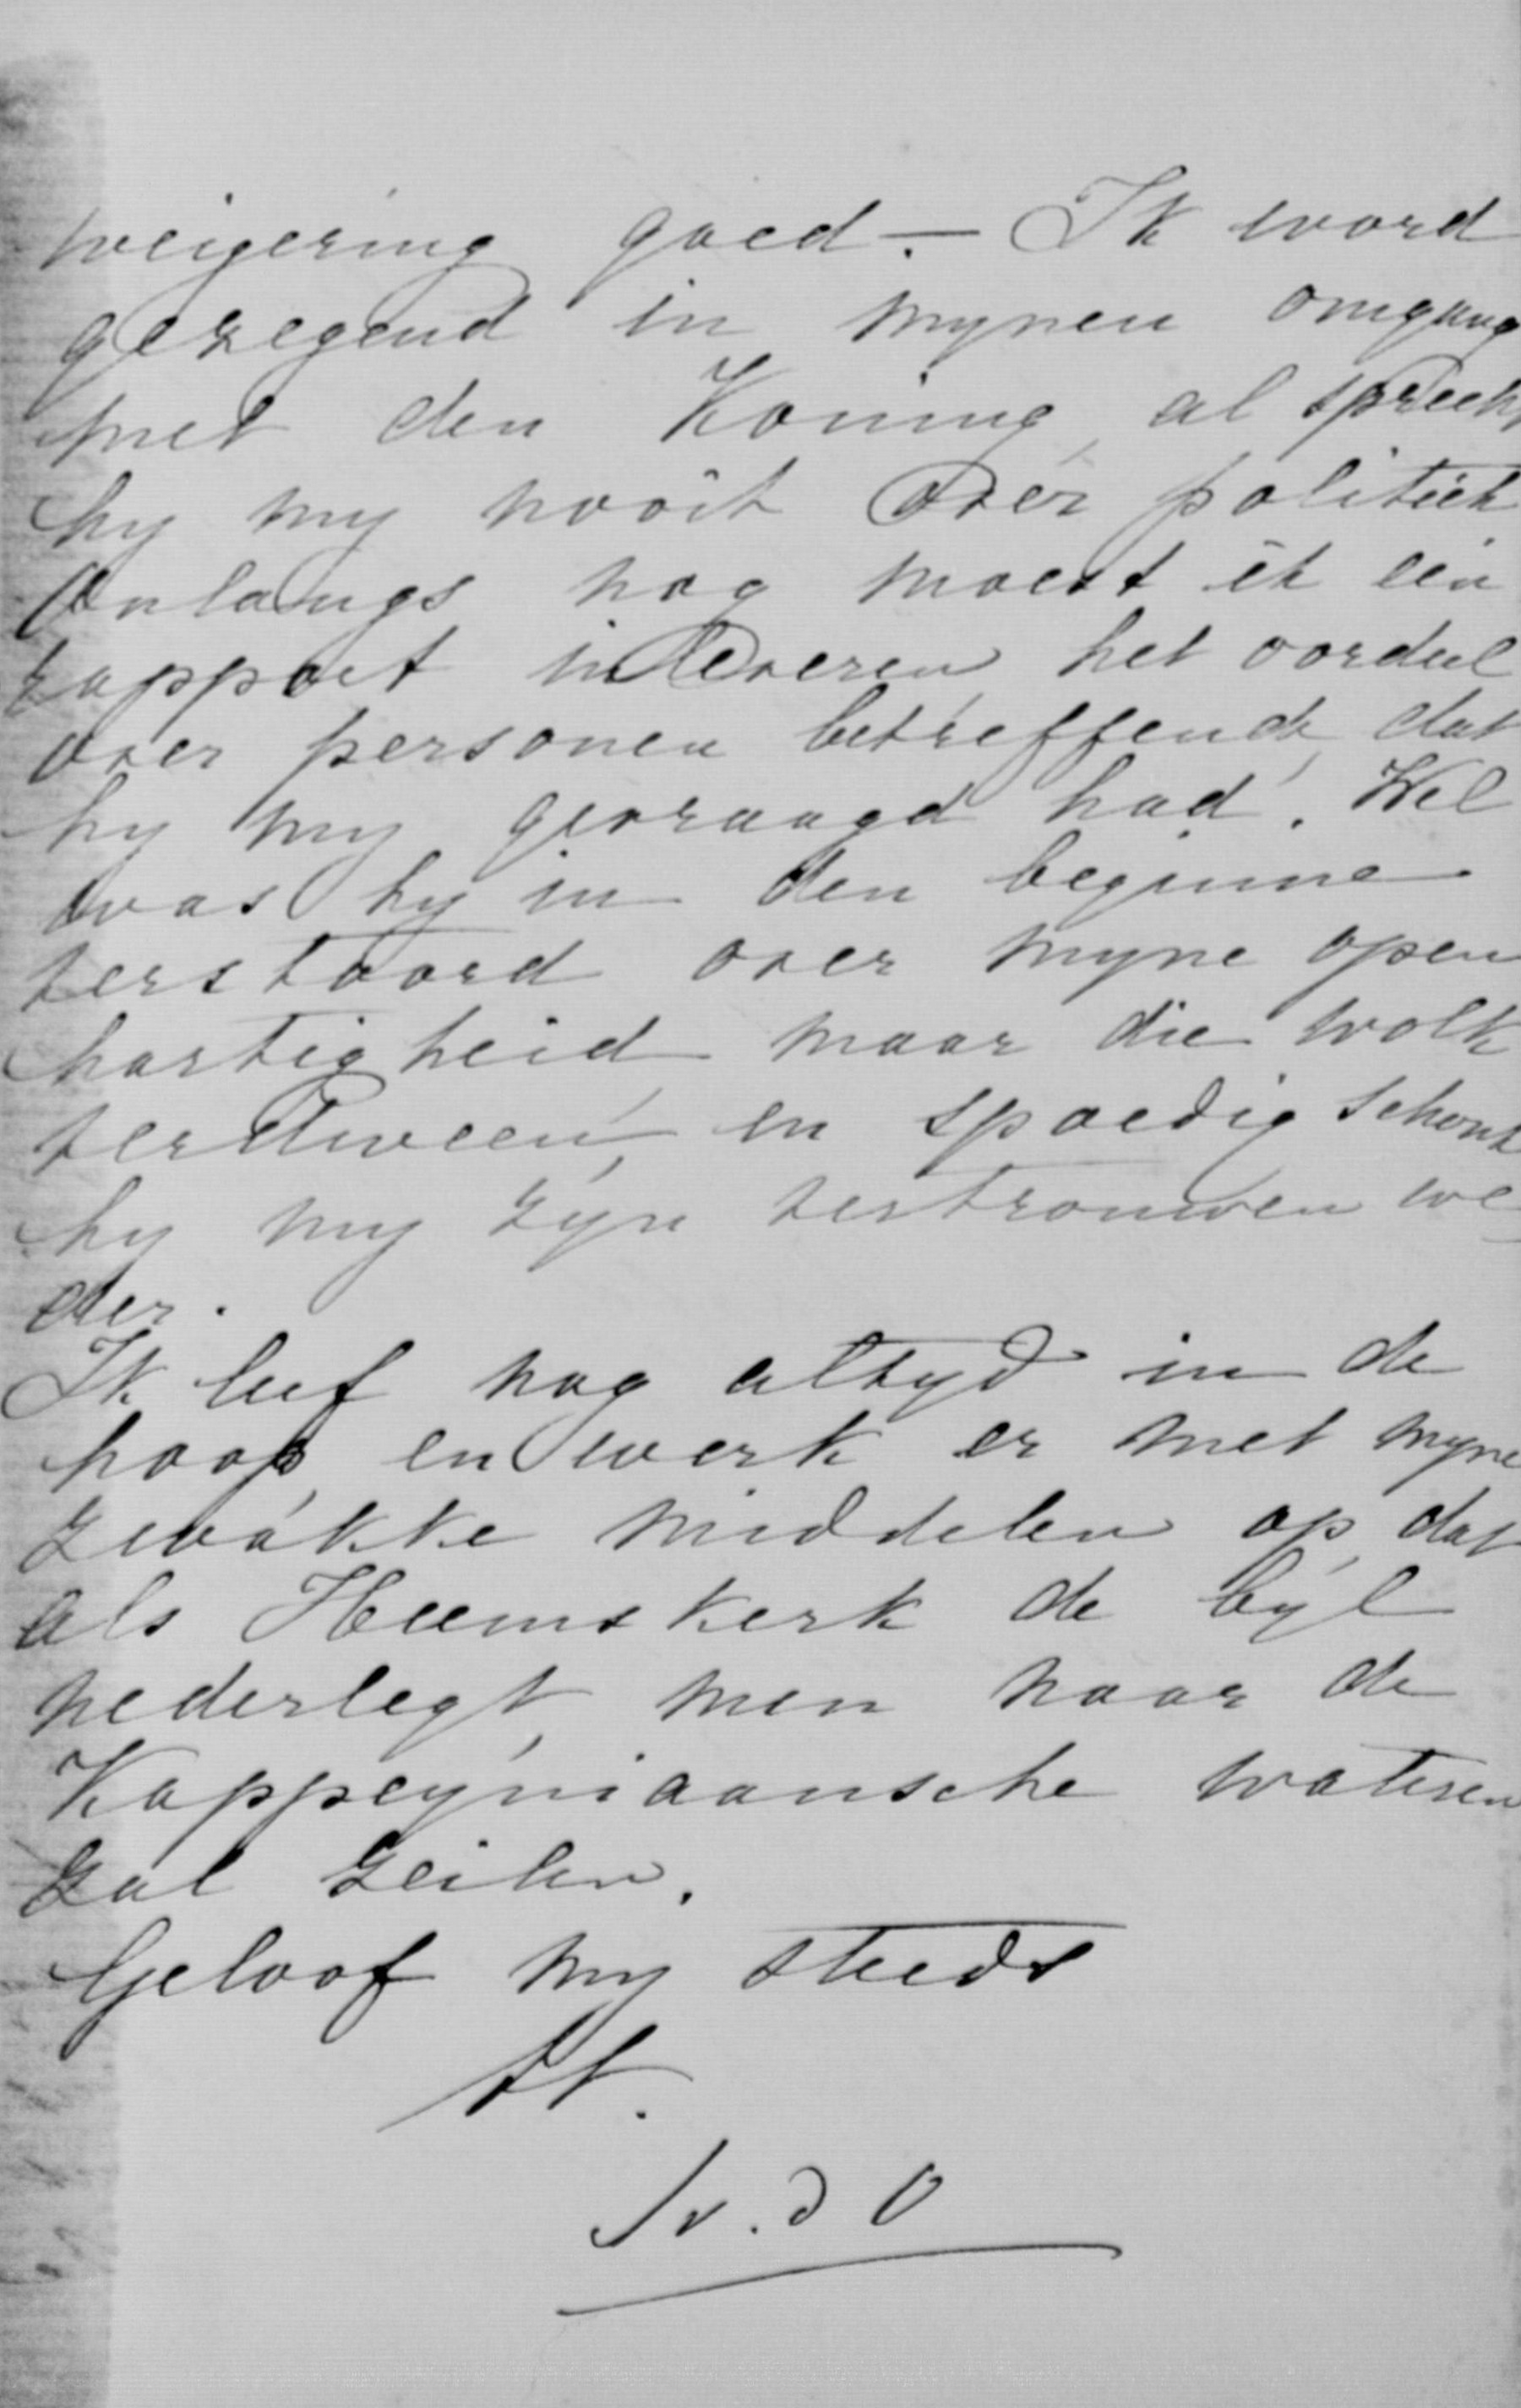 weigering goed. - Ik word
gezegend in mynen omgang
met den Koning, al spreekt
hy my nooit over politiek
Onlangs nog moest ik een
rapport inleveren, het oordeel
over personen betreffende, dat
hy my gevraagd had. Wel
was hy in den beginne
verstoord over myne open
hartigheid, maar die wolk
verdween, en spoedig schonk
hy my zyn vertrouwen we
der.
Ik leef nog altyd in de
hoop, en werk er met myne
zwakke middelen op, dat
als Heemskerk de byl
nederlegt, men naar de
Kappeyniaansche wateren
zal zeilen.
Geloof my steeds
tt.
Jv. d O